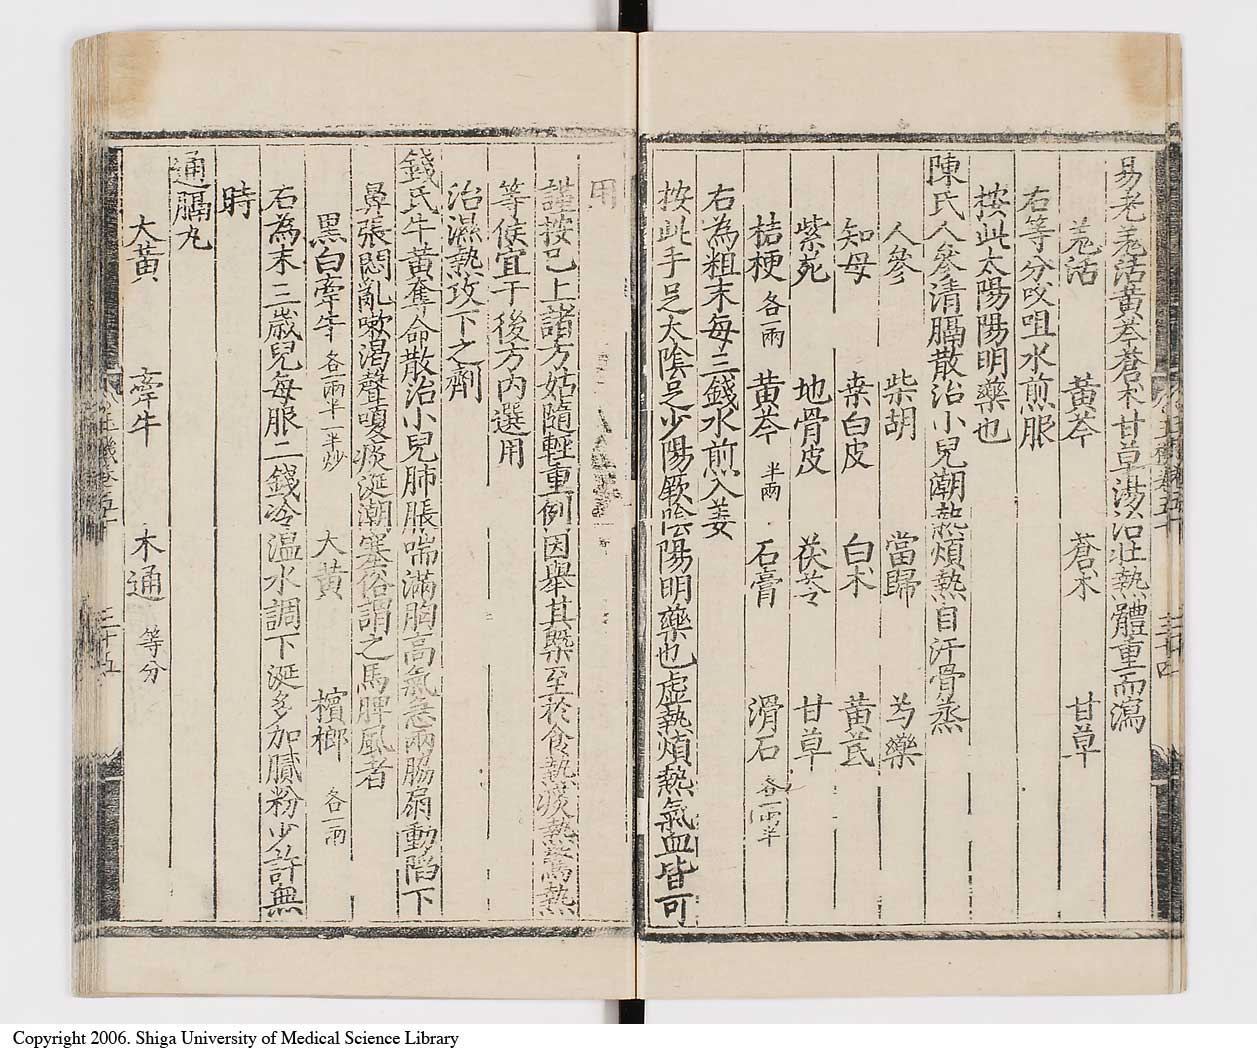 易老羗活黃芩蒼朮甘草湯治壯熱體重而瀉
羗活 黃芩 蒼朮 甘草
右等分㕮咀水煎服
按此太陽陽明藥也
陳氏人參清膈散治小兒潮熱煩熱自汗骨蒸
人參 柴胡 當歸 芍藥
知母 桒白皮 白朮 黃芪
紫菀 地骨皮 茯苓 甘草
桔梗各一兩 黃芩半兩 石膏 滑石各一兩半
右為粗末每三錢水煎入姜
按此手足太陰足少陽厥陰陽明藥也虛熱煩熱氣血皆可
用
謹按已上諸方姑隨輕重例因舉其槩至於食熱痰熱驚熱
等候宜于後方內選用
治濕熱攻下之劑
錢氏牛黃奪命散治小兒肺脹喘滿胸高氣急兩脇扇動陷下
鼻張悶亂嗽渴聲嗄痰涎潮塞俗謂之馬脾風者
黑白牽牛各一兩半一半炒 大黃 檳榔各一兩
右為末三歲兒每服二錢冷温水調下涎多加膩粉少許無
時
通膈丸
大黃 牽牛 木通等分
三十五
Copyright 2006. Shiga University of Medical Science Library